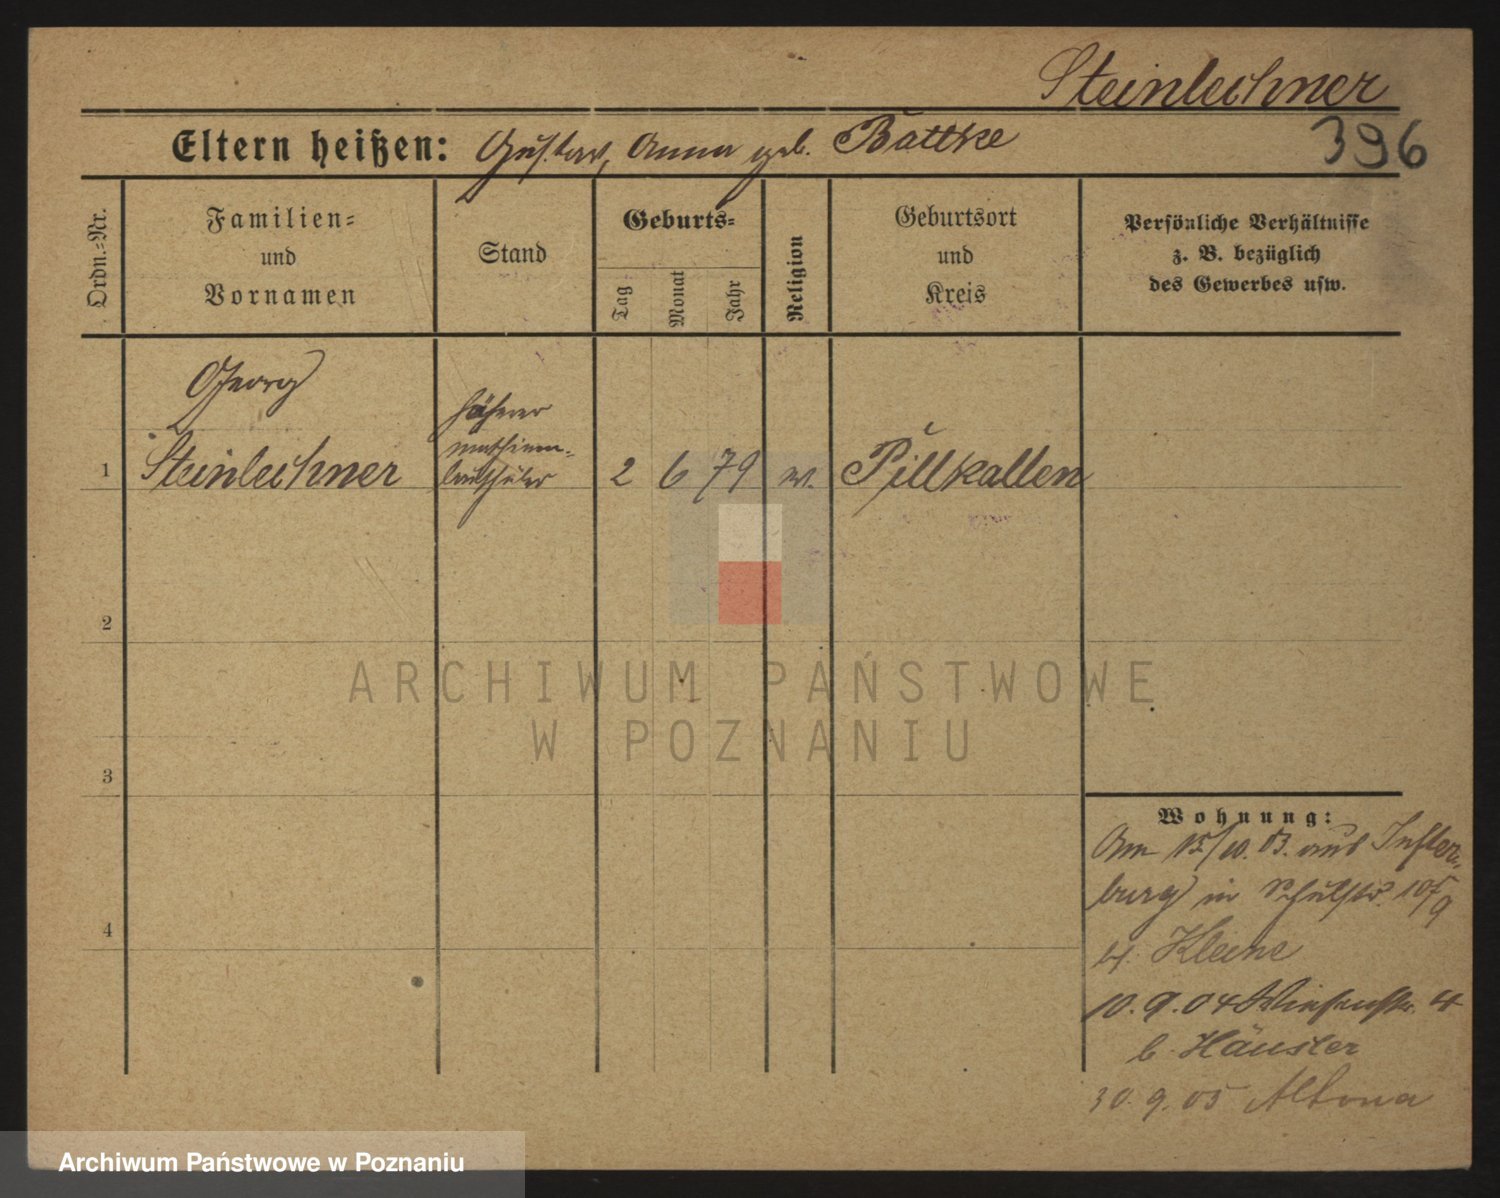 Steinlechner
Eltern heißen: Gustav, Anna geb. Battke
396
Ordn.=Nr.
Familien=
und
Vornamen
Stand
Geburts=
Tag
Monat
Jahr
Religion
Geburtsort
und
Kreis
Persönliche Verhältnisse
z. B. bezüglich
des Gewerbes usw.
Georg
höherer
1 Steinlechner 2 6 79 Pillkallen
2
3
4
Wohnung:
Am 15/10. 03. aus Inster=
burg in Schulstr. 10
b. Kleine
10. 9. 04 Wiesenstr. 4
b. Häusler
30. 9. 05 Altona
ARCHIWUM PAŃSTWOWE
W POZNANIU
Archiwum Państwowe w Poznaniu